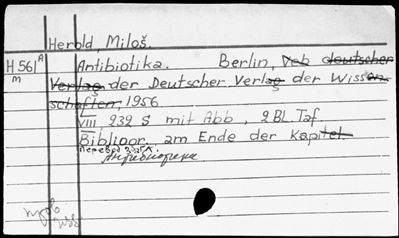 Herold, Miloš.
H 561 A Antibiotika. Berlin, Veb deutscher
m Verlag der Deutscher Verlag der Wissen
schaften, 1956
VIII, 232 S mit Abb, 2 BL Taf.
Bibliogr. am Ende der Kapitel.
Антибиотики